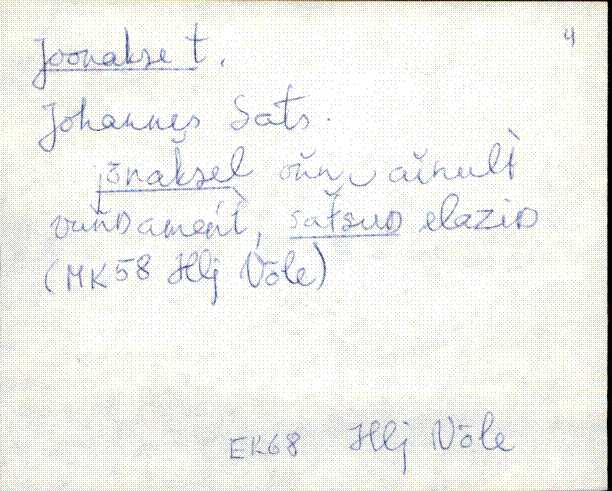 4
Joonakse t.
Johannes Sats.
jōnaksel oňn, aǐnult
vuňDament, satsuD elaziD
(MK58 Hlj Võle)
EK68 Hlj Võle